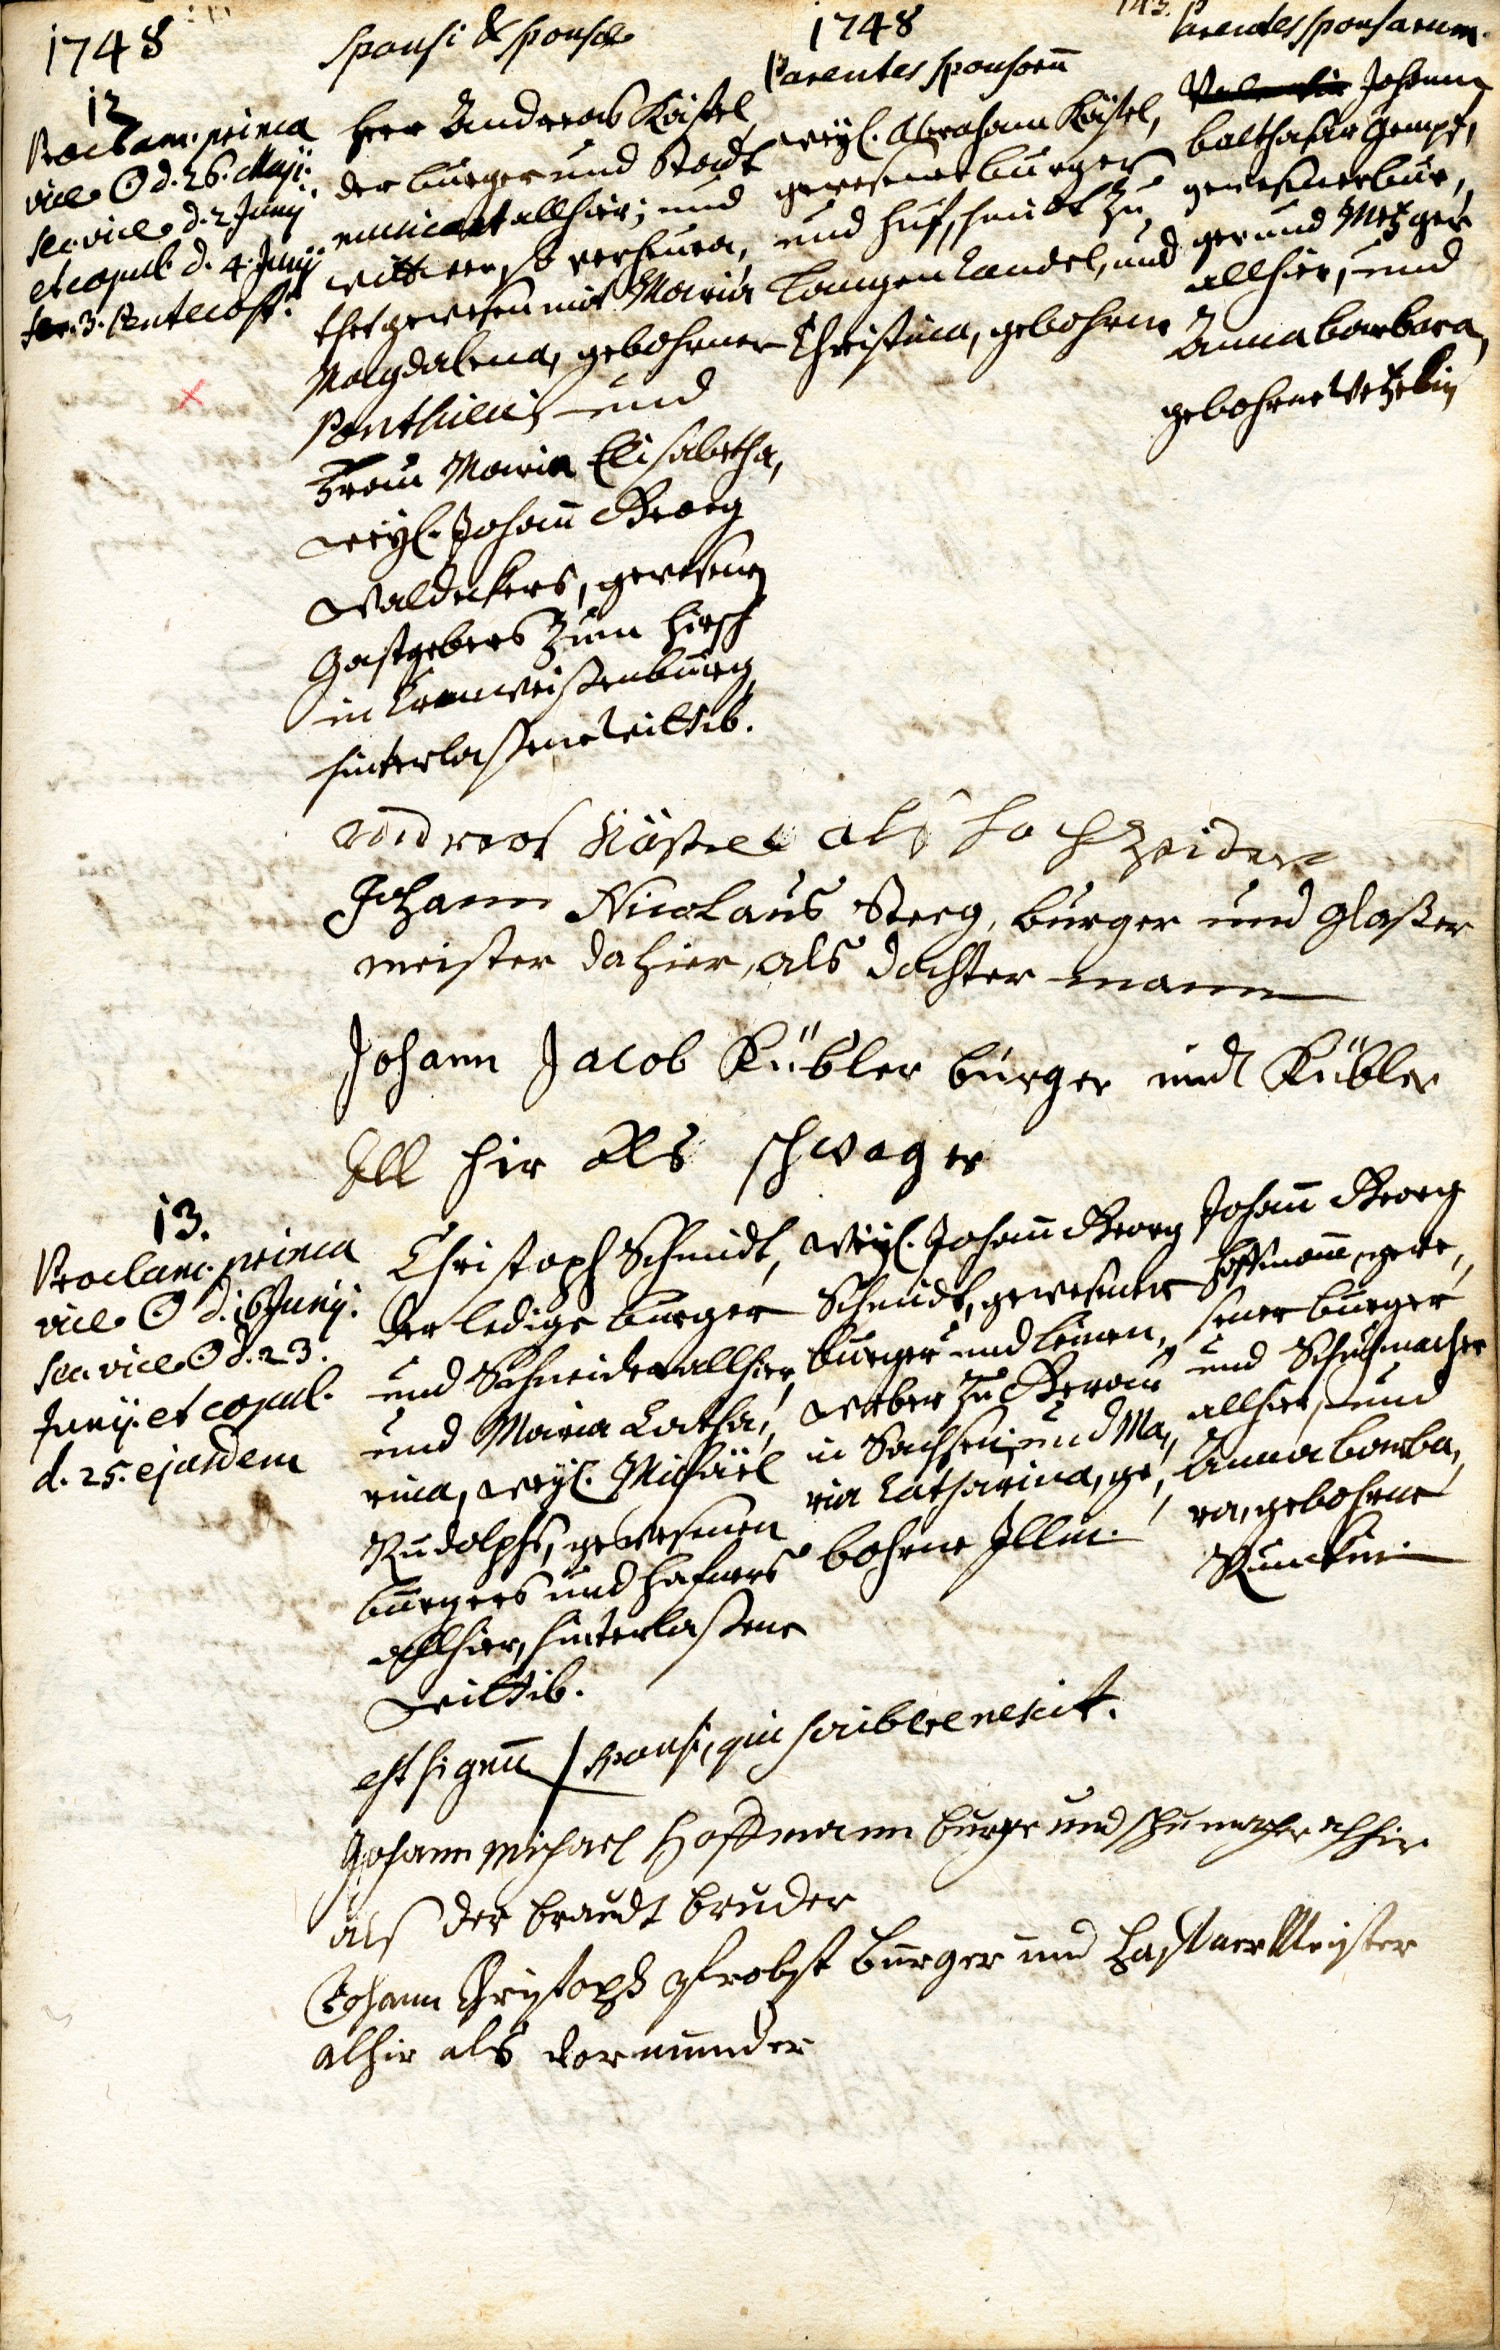 1748
Sponsi & Sponsae
1748
Parentes Sponsorū
143.
Parentes Sponsarum.
12
Proclam. prima
vice ☉ d. 26. Maji.
sec. vice d. 2 Junij
et copul. d. 4. Junij
fer. 3. Pentecost.
Herr Andreas Kästel
der burger und Stadt
musicant allhier, und
wittwer, so verheura,
thet gewesen mit Maria
Magdalena, gebohrner
und
Frau Maria Elisabetha,
weyl. Johañ Georg
Waldeckers, gewesenen
Gastgebers zum Hirsch
in Cronweißenburg
hinterlaßene Wittib.
weyl. Abraham Kästel,
gewesener burger
und Hufschmidt zu
Langen Candel, und
Christina, gebohrne
Johann
balthasar Gempf,
gewesener bur,
ger und Metzger
allhier, und
Anna barbara,
gebohrne Wetzelin
Andreas Kästel als Hochzeider
Johann Nicolaus Steeg, burger und glaßer
meister dahier, als dochter mann
Johann Jacob Kübler burger undt Kübler
all hir als schwager
13.
Proclam. prima
vice ☉ d. 16 Junij.
sec. vice ☉ d. 23.
Junij. et copul.
d. 25. ejusdem
Christoph Schmidt,
der ledige burger
und Schneider allhier,
und Maria Catha,
rina, weyl. Michäel
Rudolphs, gewesenen
burgers und Hafners
allhier, hinterlaßene
Wittib.
weyl. Johañ Georg
Schmidt, gewesener
burger und leinen,
weber zu Gerau
in Sachsen, und Ma,
ria Catharina, ge,
bohrne Illin.
Johañ Georg
Hoffmann, gewe,
sener burger
und Schuhmacher
allhier, und
Anna barba,
ra, gebohrne
Runckin.
est signū / sponsi, qui scribere nescit.
Johann Michael Hoffmann burger und schumacher alhir
als der braudt bruder
Johann Christoph Probst burger und Haffner Meister
alhir als vormunder